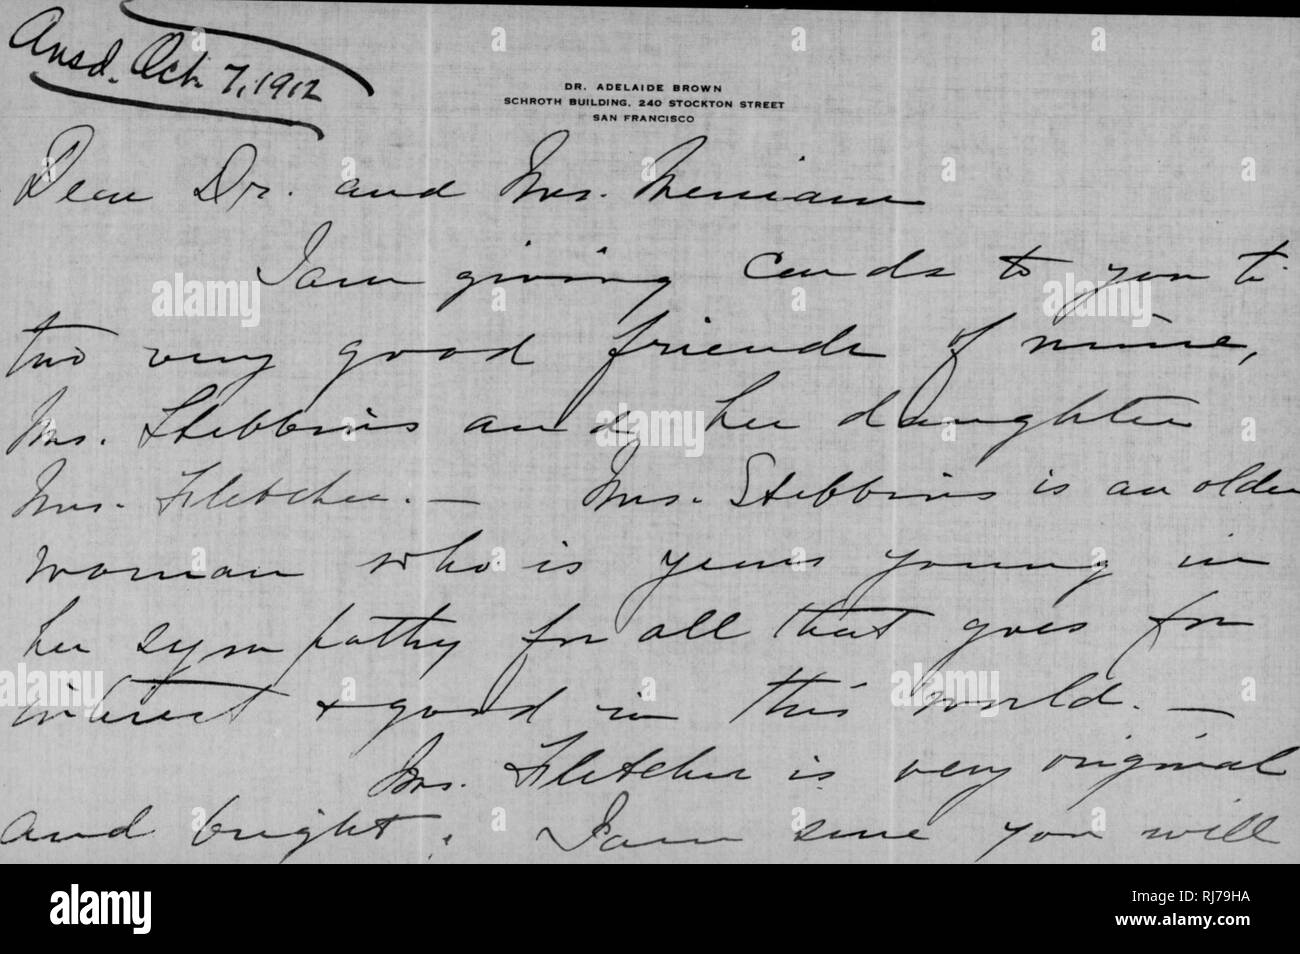 Ansd. Oct 7, 1912
DR. ADELAIDE BROWN
SCHROTH BUILDING, 240 STOCKTON STREET
SAN FRANCISCO
Dear Dr. and Mrs. Merriam
I am giving cards to you to
two very good friends of mine,
Mrs. Stebbins and her daughter
Mrs. Fletcher. — Mrs. Stebbins is an older
woman who is years young in
her sympathy for all that goes for
interest + good in this world. —
Mrs. Fletcher is very original
and bright. I am sure you will
alamy
Image ID: RJ79HA
www.alamy.com